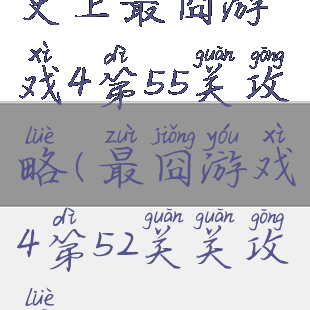 史上最囧游
xì dì guān gōng
戏4第55关攻
lüè zuì jiǒng yóu xì
略(最囧游戏
dì guān guān gōng
4第52关关攻
lüè